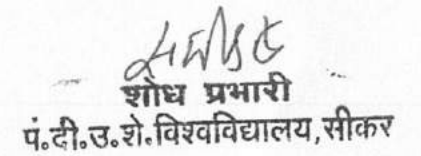 शोध प्रभारी
पं.दी.उ.शे.विश्वविद्यालय,सीकर